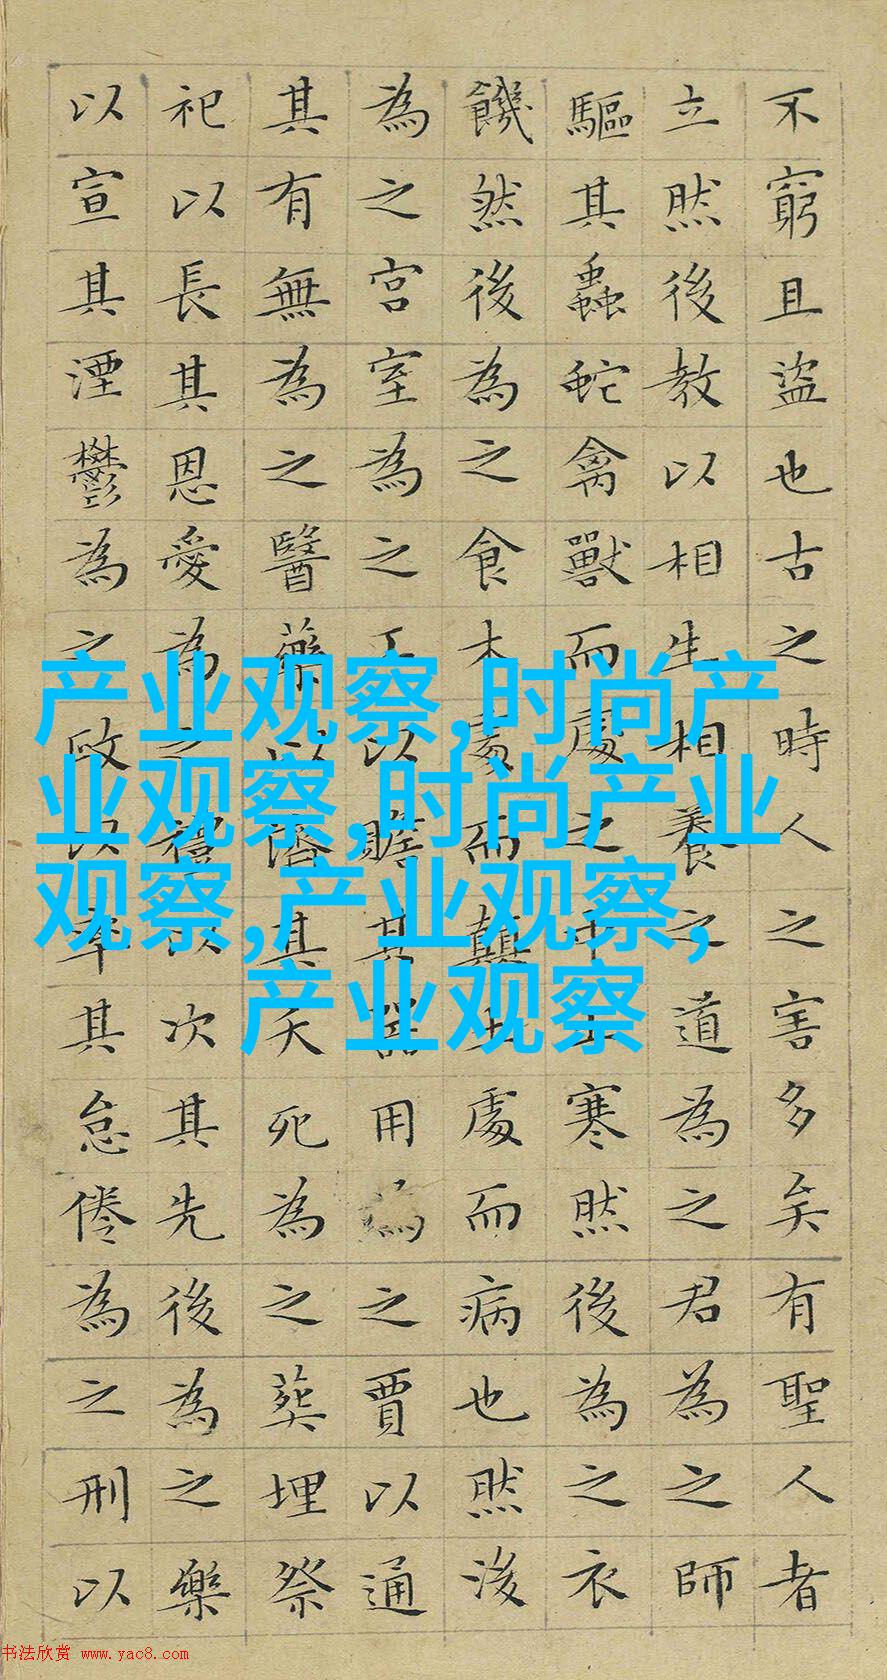 不窮且盜也古之時人之害多矣有聖人者
立然後教以相生相養之道為之君為之師
驅其蟲蛇禽獸而處之中土寒然後為之衣
饑然後為之食木處而顛土處而病也然後
為之宮室為之工以贍其器用為之賈以通
其有無為之醫藥以濟其夭死為之葬埋祭
祀以長其恩愛為之禮以次其先後為之樂
以宣其湮鬱為之政以率其怠倦為之刑以
产业观察,时尚产
业观察,时尚产业
观察,产业观察,
产业观察
书法欣赏 www.yac8.com